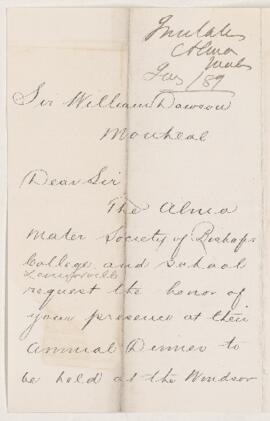 Alma
/89
Sir William Dawson
Montreal
Dear Sir
The Alma
Mater Society of Bishops
College and School
Lennoxville
request the honor of
your presence at their
Annual Dinner to
be held at the Windsor